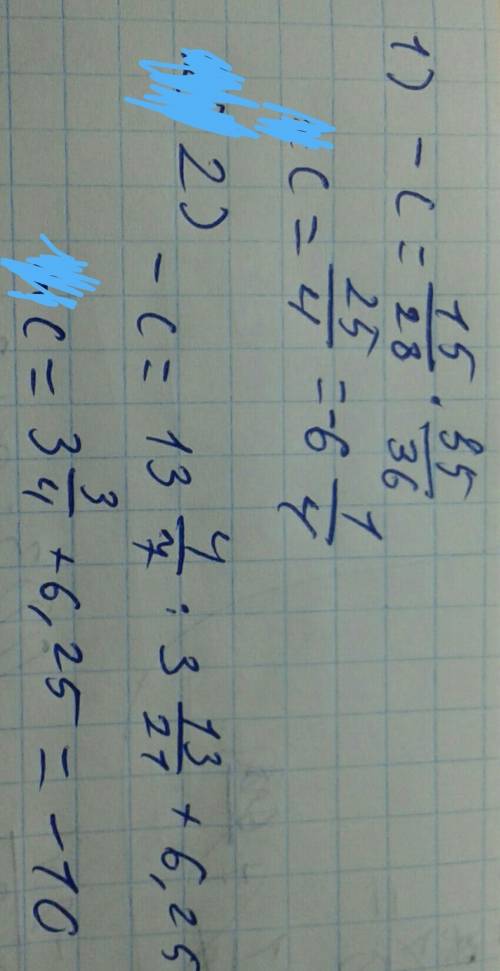 1) -c = 15/28 · 35/36
c = 25/4 = -6 1/4
2) -c = 13 4/7 : 3 13/21 + 6,25
c = 3 3/4 + 6,25 = -10